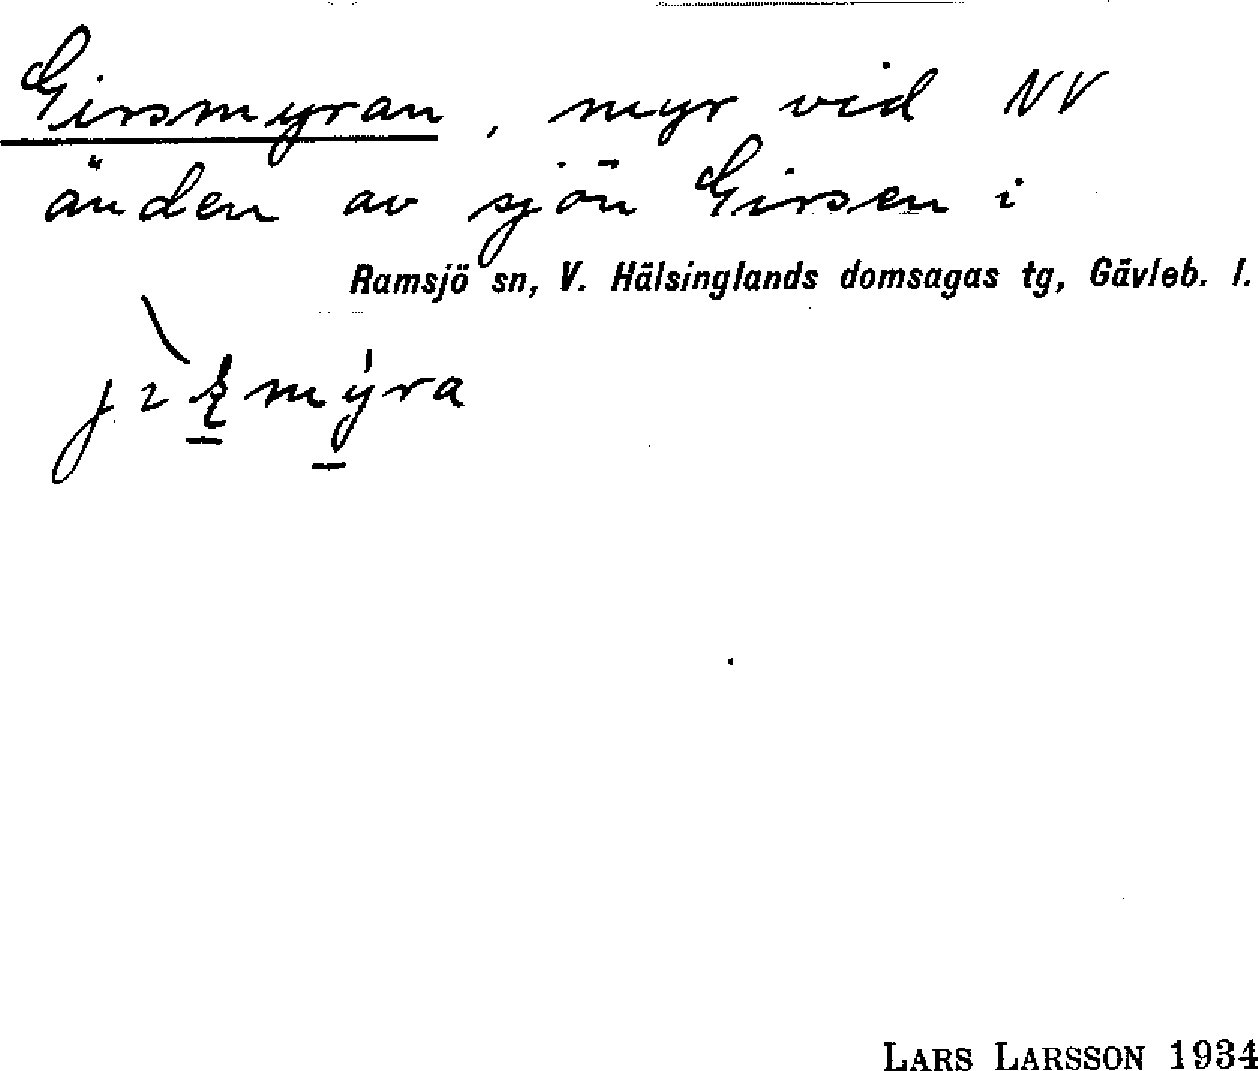 Girsmyran, myr vid NV
änden av sjön Girsen i
Ramsjö sn, V. Hälsinglands domsagas tg, Gävleb. l.
LARS LARSSON 1934